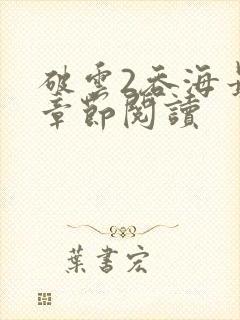 破雲2吞海
章節閱讀
葉書宏